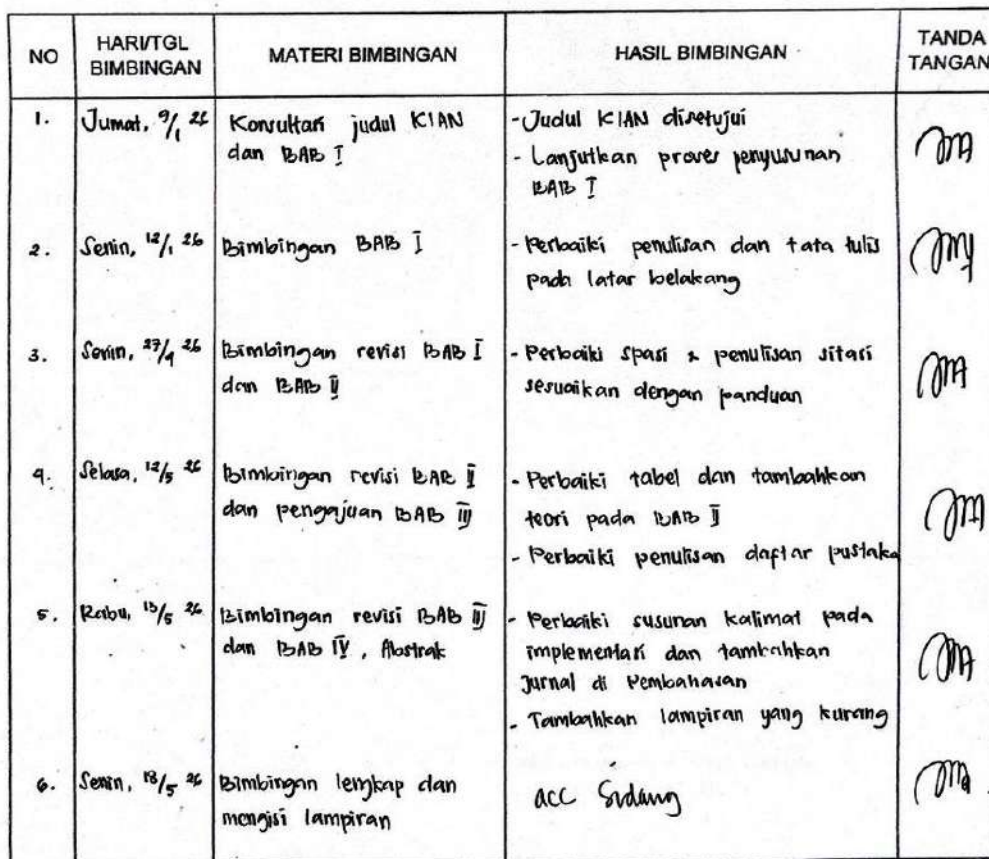 NO
HARI/TGL
BIMBINGAN
MATERI BIMBINGAN
HASIL BIMBINGAN
TANDA
TANGAN
1.
Jumat, 9/1 26
Konsultasi judul KIAN
dan BAB I
- Judul KIAN disetujui
- Lanjutkan proses penyusunan
BAB I
2.
Senin, 12/1 26
Bimbingan BAB I
- Perbaiki penulisan dan tata tulis
pada latar belakang
3.
Senin, 27/4 26
Bimbingan revisi BAB I
dan BAB II
- Perbaiki spasi & penulisan sitasi
sesuaikan dengan panduan
4.
Selasa, 12/5 26
Bimbingan revisi BAB II
dan pengajuan BAB III
- Perbaiki tabel dan tambahkan
teori pada BAB II
- Perbaiki penulisan daftar pustaka
5.
Rabu, 13/5 26
Bimbingan revisi BAB III
dan BAB IV, Abstrak
- Perbaiki susunan kalimat pada
implementasi dan tambahkan
Jurnal di Pembahasan
- Tambahkan lampiran yang kurang
6.
Senin, 18/5 26
Bimbingan lengkap dan
mengisi lampiran
acc Sidang